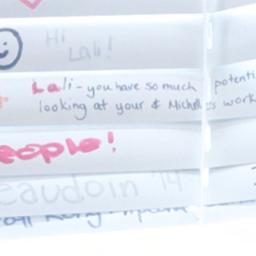 Hi
Lali!
Lali - you have so much potenti
looking at your & Michelle's work
eople!
eaudoin '14